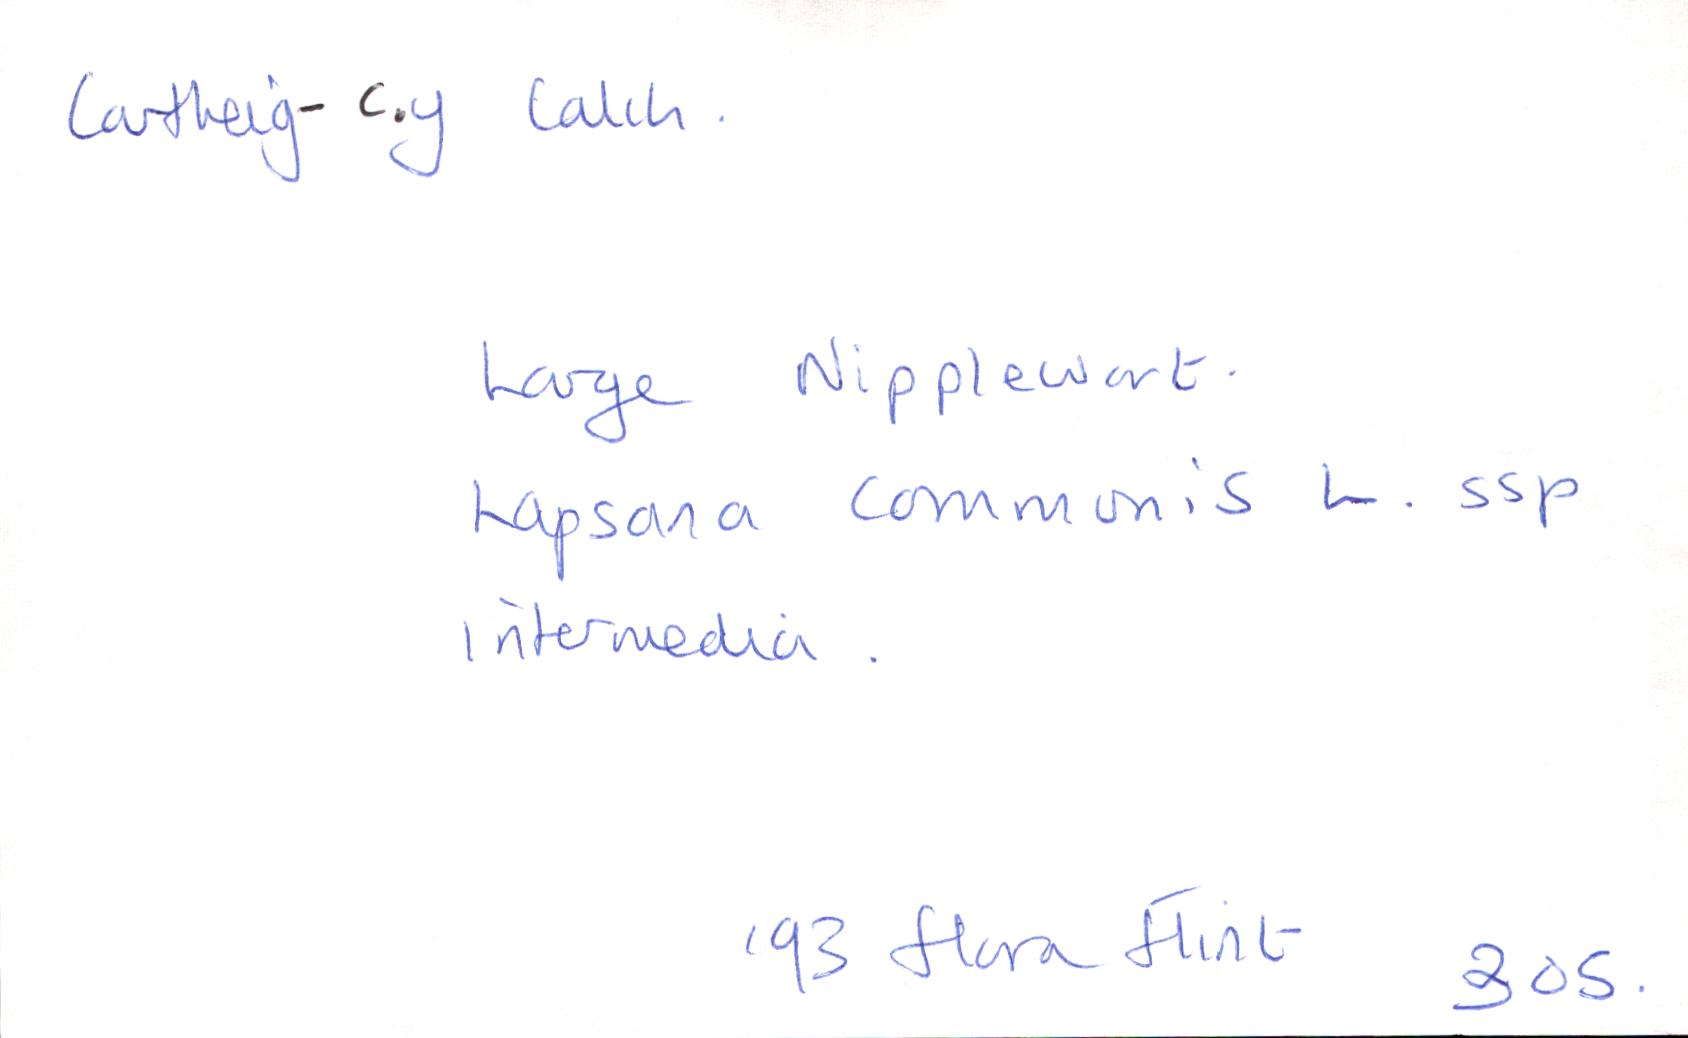 Cartheig- c.y Calch.
Large Nipplewort.
Lapsana communis L. ssp
intermedia.
'93 flora Flint 305.